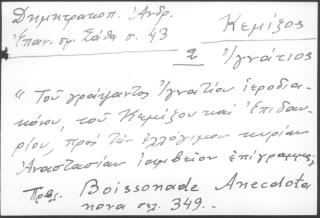 Δημητρακοπ. Ἀνδρ.
Ἐπαν. σμ. Σάθα σ. 43
Κεμίξος
2 Ἰγνάτιος
"Τοῦ γράψαντος Ἰγνατίου ἱεροδια-
κόνου, τοῦ Κεμίξου καὶ Ἐπιδαυ-
ρίου, πρὸς τὸν ἐλλόγιμον κύριον
Ἀναστασίαν ἰαμβεῖον ἐπίγραμμα,
Πρβλ. Boissonade Anecdota
nova σελ. 349.-